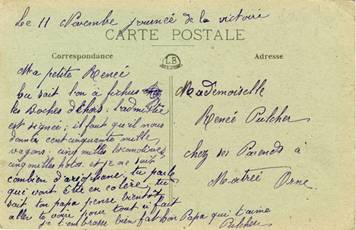 Le 11 Novembre journée de la victoire
CARTE POSTALE
Correspondance
Adresse
LB
Ma petite Renée
tu sait l'on à fichus
les Boches dehors. l'admistie
est signée; il faut qu'il nous
cent cinquante mille
wagons, cinq mille locomotives,
cinq mille et je ne sais
combien d'aréoplane, tu parle
qui vont être en colère, tu
sait ton papa pense bientôt
aller te voir pour tout à fait
je t'embrasse bien fort ton Papa qui t'aime
Pulcher
Mademoiselle
Renée Pulcher
chez ses Parents à
Montreé Orne